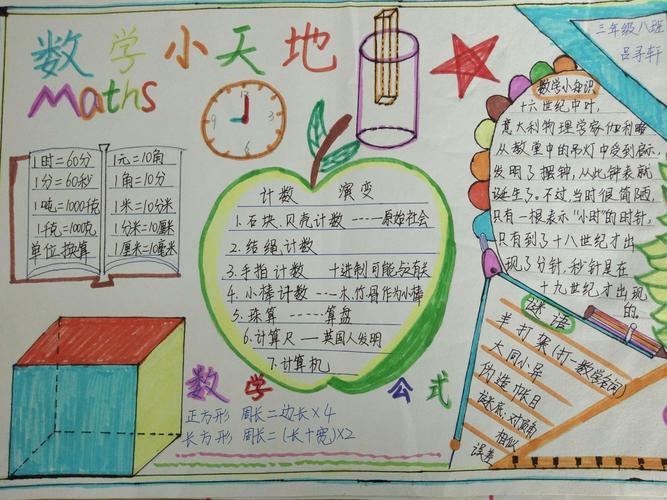 数学小天地
Maths
三年级八班
吕寻轩
1时=60分
1分=60秒
1吨=1000千克
1千克=1000克
单位换算
1元=10角
1角=10分
1米=10分米
1分米=10厘米
1厘米=10毫米
12
3
6
9
计数 演变
1.石块、贝壳计数----原始社会
2.结绳计数
3.手指计数 十进制可能与有关
4.小棒计数---木、竹、骨作为小棒
5.珠算 ------算盘
6.计算尺—英国人发明
7.计算机
数学小知识
十六世纪中叶,
意大利物理学家伽利略
从教堂中的吊灯中受到启示,
发明了摆钟,从此钟表就
诞生了。不过,当时很简陋,
只有一根表示"小时"的时针,
只有到了十八世纪才出
现了分针,秒针是在
十九世纪才出现
的。
谜语
半打架(打一数学名词)
大同小异
伪造帐目
谜底:对顶角
相似
误差
数学公式
正方形 周长=边长×4
长方形 周长=(长+宽)×2